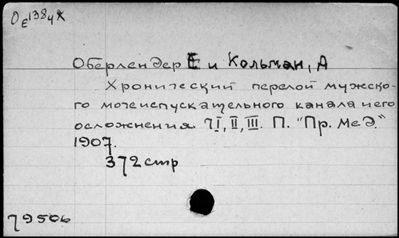 Оберлендер Е и Кольман, А
Хронический перелой мужско-
го мочеиспускательного канала и его
осложнения. ЧI, II, III. П. "Пр. Мед."
1907.
372 стр
79506